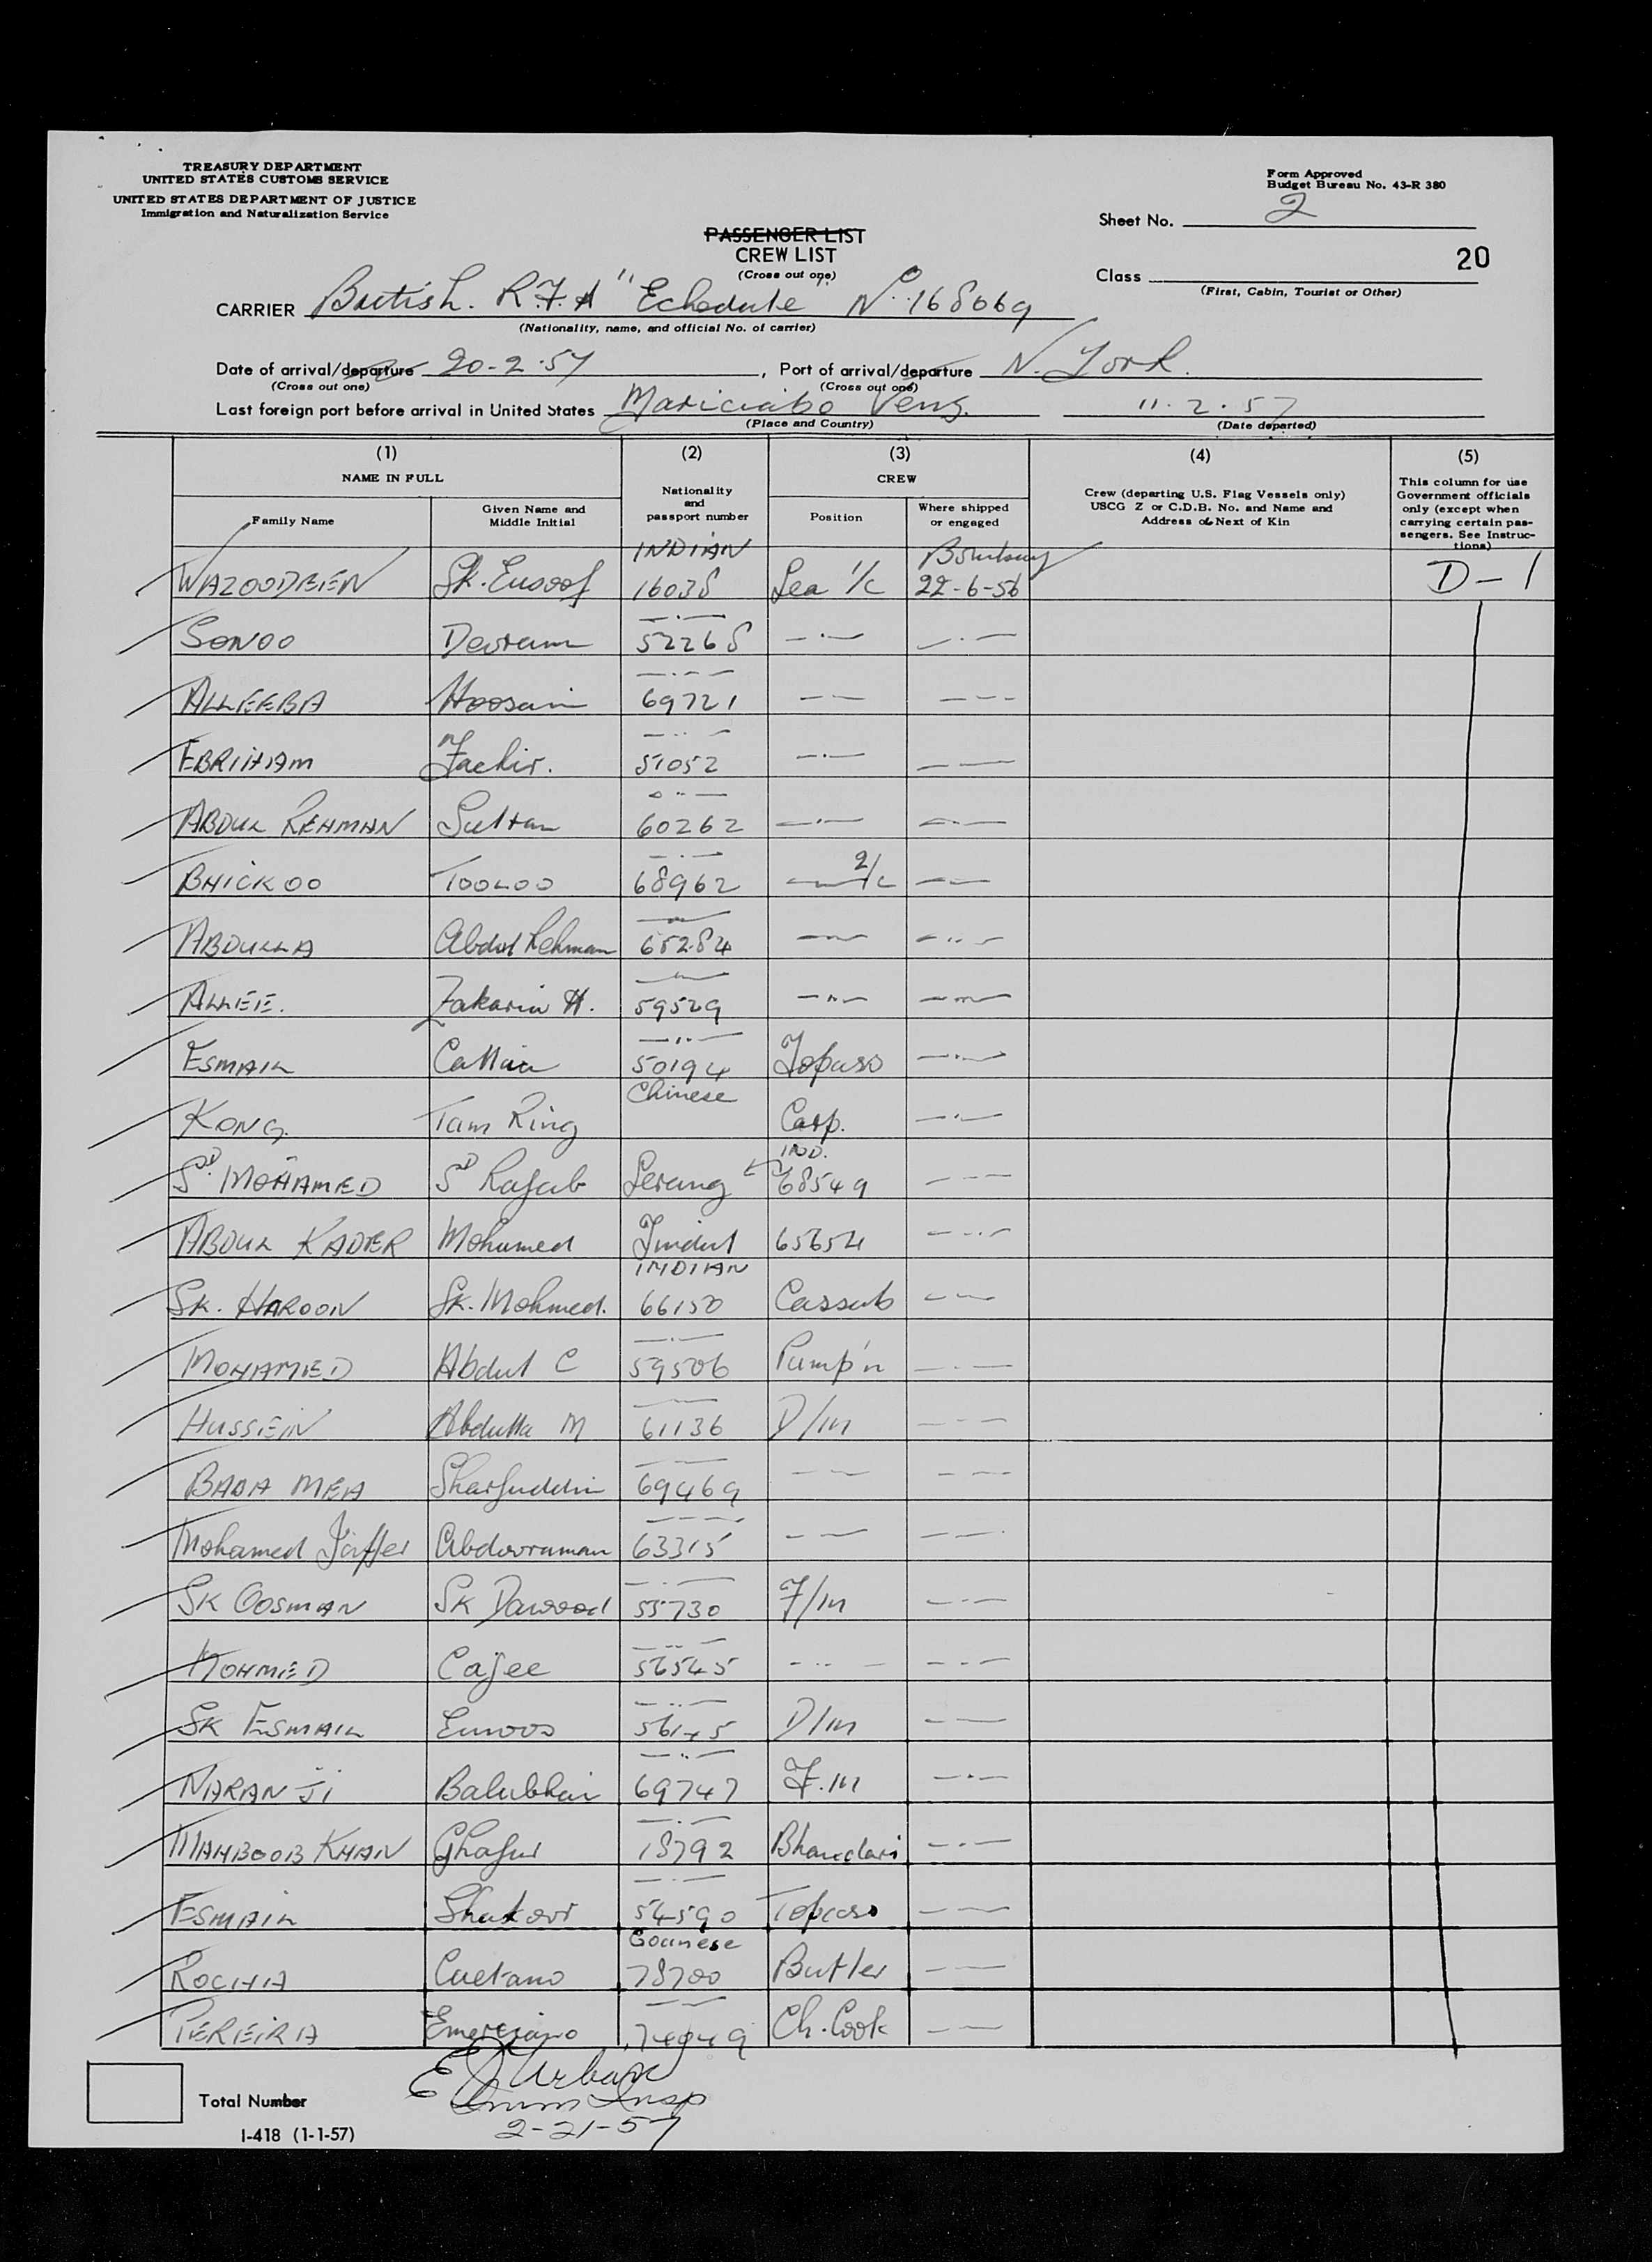 TREASURY DEPARTMENT
UNITED STATES CUSTOMS SERVICE
UNITED STATES DEPARTMENT OF JUSTICE
Immigration and Naturalization Service
Form Approved
Budget Bureau No. 43-R 380
Sheet No. 2
PASSENGER LIST
CREW LIST
(Cross out one)
20
Class
(First, Cabin, Tourist or Other)
CARRIER British. R.F.A "Echodale" No. 168069
(Nationality, name, and official No. of carrier)
Date of arrival/departure 20-2-57, Port of arrival/departure N. York.
(Cross out one) (Cross out one)
Last foreign port before arrival in United States Mariciabo Venz. 11.2.57
(Place and Country) (Date departed)
(1) (2) (3) (4) (5)
NAME IN FULL
Family Name
Given Name and Middle Initial
Nationality and passport number
CREW
Position
Where shipped or engaged
Crew (departing U.S. Flag Vessels only)
USCG Z or C.D.B. No. and Name and
Address of Next of Kin
This column for use
Government officials
only (except when
carrying certain pas-
sengers. See Instruc-
tions)
INDIAN Bombay
WAZOODEEN Sk. Eusoof 16038 Sea 1/c 22-6-56 D-1
SONOO Devram 52268 —·— —·—
ALLEEBA Hoosain 69721 —— ———
EBRIHAM Fackir. 51052 —·— ——
ABDUL REHMAN Sultan 60262 —·— —·—
BHICKOO TOOLOO 68962 — 2/c ——
ABDULLA Abdul Rehman 65284 —— —··—
ALLEE. Zakaria H. 59529 —"— —"—
ESMAIL 50194 Topass —·—
Chinese
KONG. Tam King Carp. —·—
IND.
SD. MOHAMED SD Rajab Serang 68549 ———
ABDUL KADER Mohamed Tindal 65654 —··—
INDIAN
SK. HAROON Sk. Mohmed. 66150 Cassab ———
MOHAMED Abdul C 59506 Pump'n —·—
HUSSEIN Abdulla M 61136 D/m ———
BADA MEA Sharfuddin 69469 —— ———
Mohamed Jaffer Abdooraman 63315 —— ———
SK OOSMAN SK Dawood 55730 F/m —·—
MOHMED Cajee 56545 —··— ———
SK ESMAIL Eunoos 56145 D/m ——
NARANJI Balubhai 69747 F.m —·—
MAHBOOB KHAN Ghafur 18792 Bhandari —·—
ESMAIL Shakoor 54590 Topass ——
Goanese
ROCHA Caetano 78700 Butler ——
PEREIRA Emerciano Ch. Cook ——
E J Urban
Imm Insp
2-21-57
Total Number
I-418 (1-1-57)